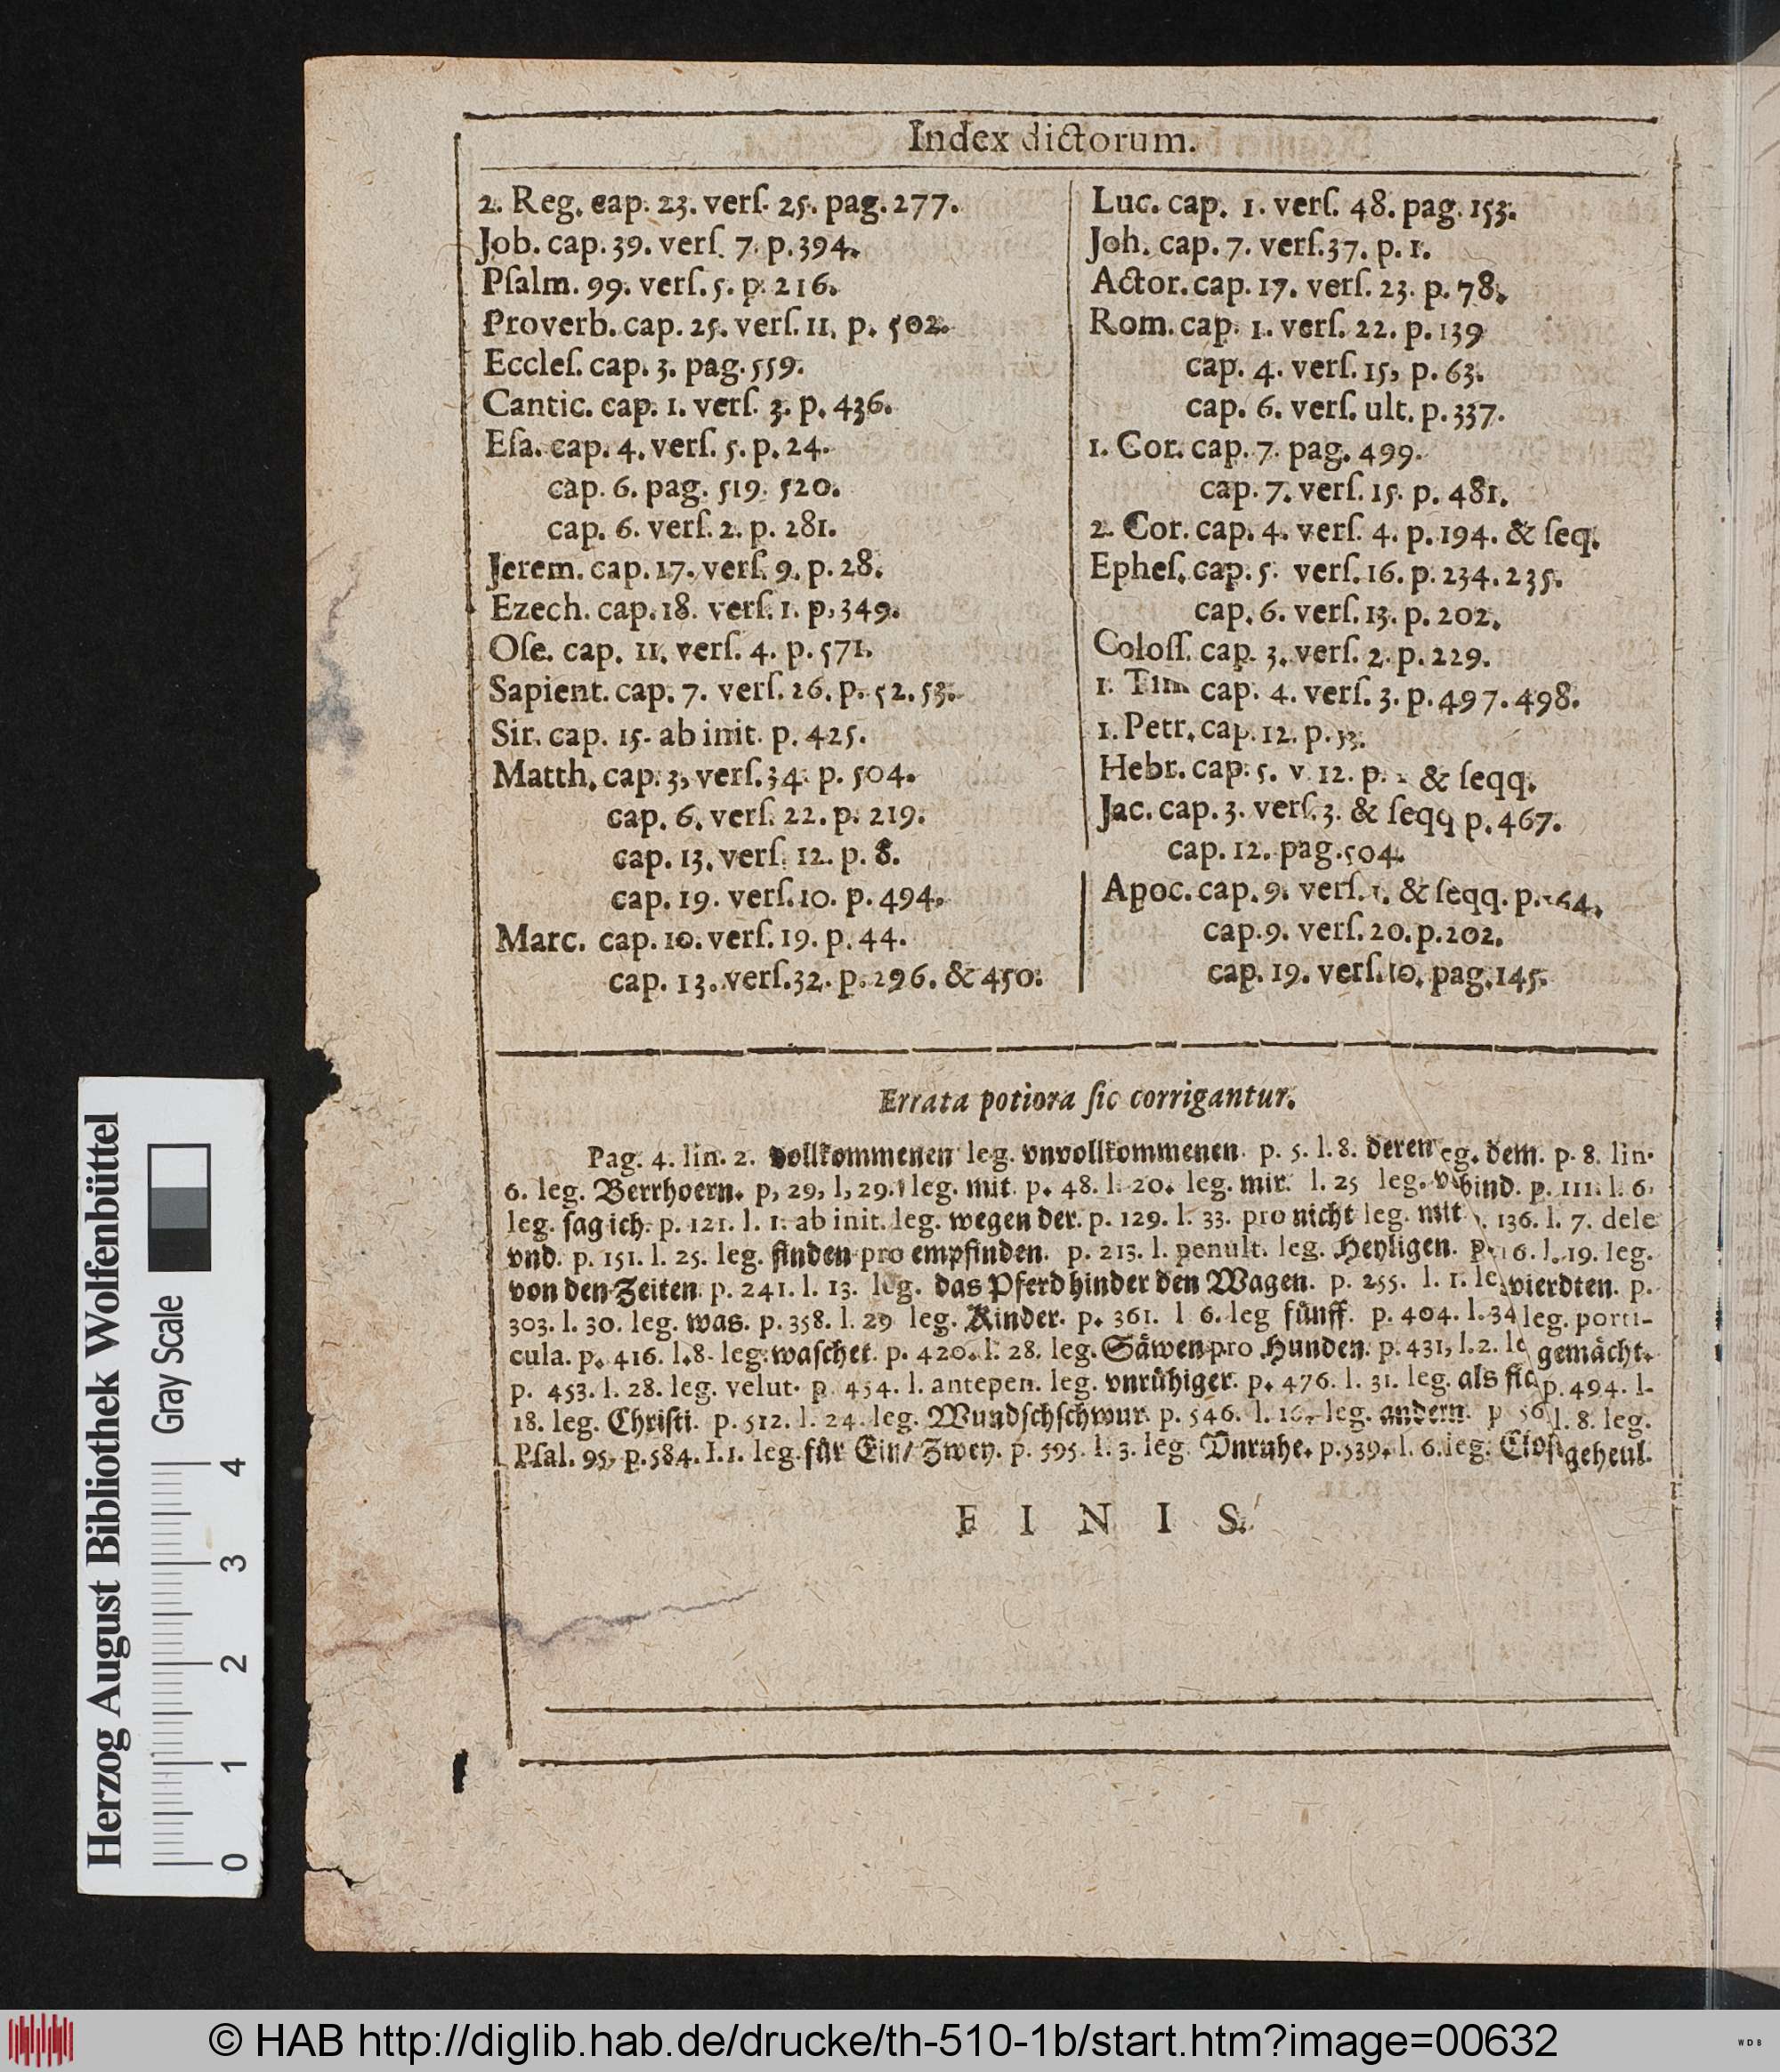 Index dictorum.
2. Reg. cap. 23. verſ. 25. pag. 277.
Job. cap. 39. verſ. 7. p. 394.
Pſalm. 99. verſ. 5. p. 216.
Proverb. cap. 25. verſ. 11. p. 502.
Eccleſ. cap. 3. pag. 559.
Cantic. cap. 1. verſ. 3. p. 436.
Eſa. cap. 4. verſ. 5. p. 24.
cap. 6. pag. 519. 520.
cap. 6. verſ. 2. p. 281.
Jerem. cap. 17. verſ. 9. p. 28.
Ezech. cap. 18. verſ. 1. p. 349.
Oſe. cap. 11. verſ. 4. p. 571.
Sapient. cap. 7. verſ. 26. p. 52. 53.
Sir. cap. 15. ab init. p. 425.
Matth. cap. 3, verſ. 34. p. 504.
cap. 6. verſ. 22. p. 219.
cap. 13. verſ. 12. p. 8.
cap. 19. verſ. 10. p. 494.
Marc. cap. 10. verſ. 19. p. 44.
cap. 13. verſ. 32. p. 296. & 450.
Luc. cap. 1. verſ. 48. pag. 153.
Joh. cap. 7. verſ. 37. p. 1.
Actor. cap. 17. verſ. 23. p. 78.
Rom. cap. 1. verſ. 22. p. 139
cap. 4. verſ. 15, p. 63.
cap. 6. verſ. ult. p. 337.
1. Cor. cap. 7. pag. 499.
cap. 7. verſ. 15. p. 481.
2. Cor. cap. 4. verſ. 4. p. 194. & ſeq.
Epheſ. cap. 5. verſ. 16. p. 234. 235.
cap. 6. verſ. 13. p. 202.
Coloſſ. cap. 3. verſ. 2. p. 229.
1. Tim cap. 4. verſ. 3. p. 497. 498.
1. Petr. cap. 12. p.
Hebr. cap. 5. v. 12. p. & ſeqq.
Jac. cap. 3. verſ. 3. & ſeqq p. 467.
cap. 12. pag. 504.
Apoc. cap. 9. verſ. 1. & ſeqq. p. 64.
cap. 9. verſ. 20. p. 202.
cap. 19. verſ. 10. pag. 145.
Errata potiora ſic corrigantur.
Pag. 4. lin. 2. vollkommenen leg. vnvollkommenen. p. 5. l. 8. deren eg. dem. p. 8. lin.
6. leg. Berrhoern. p, 29, l, 29. leg. mit. p. 48. l. 20. leg. mir. l. 25 leg. bind. p. 111. l. 6.
leg. ſag ich. p. 121. l. 1. ab init. leg. wegen der. p. 129. l. 33. pro nicht leg. mit . 136. l. 7. dele
vnd. p. 151. l. 25. leg. finden pro empfinden. p. 213. l. penult. leg. Heyligen. p. 16. l. 19. leg.
von den Zeiten. p. 241. l. 13. leg. das Pferd hinder den Wagen. p. 255. l. 1. le vierdten. p.
303. l. 30. leg. was. p. 358. l. 29 leg. Kinder. p. 361. l 6. leg fünff. p. 404. l. 34 leg. porti-
cula. p. 416. l. 8. leg. waſchet. p. 420. l. 28. leg. Säwen pro Hunden. p. 431, l. 2. le gemächt.
p. 453. l. 28. leg. velut. p. 454. l. antepen. leg. vnrühiger. p. 476. l. 31. leg. als p. 494. l.
18. leg. Chriſti. p. 512. l. 24. leg. Wundſchſchwur. p. 546. l. leg. andern. p 56 l. 8. leg.
Pſal. 95, p. 584. l. 1. leg. für Ein / Zwey. p. 595. l. 3. leg. Vnruhe. p. 539. l. 6. leg. geheul.
FINIS.
Herzog August Bibliothek Wolfenbüttel
Gray Scale
0 1 2 3 4
© HAB http://diglib.hab.de/drucke/th-510-1b/start.htm?image=00632
WDB